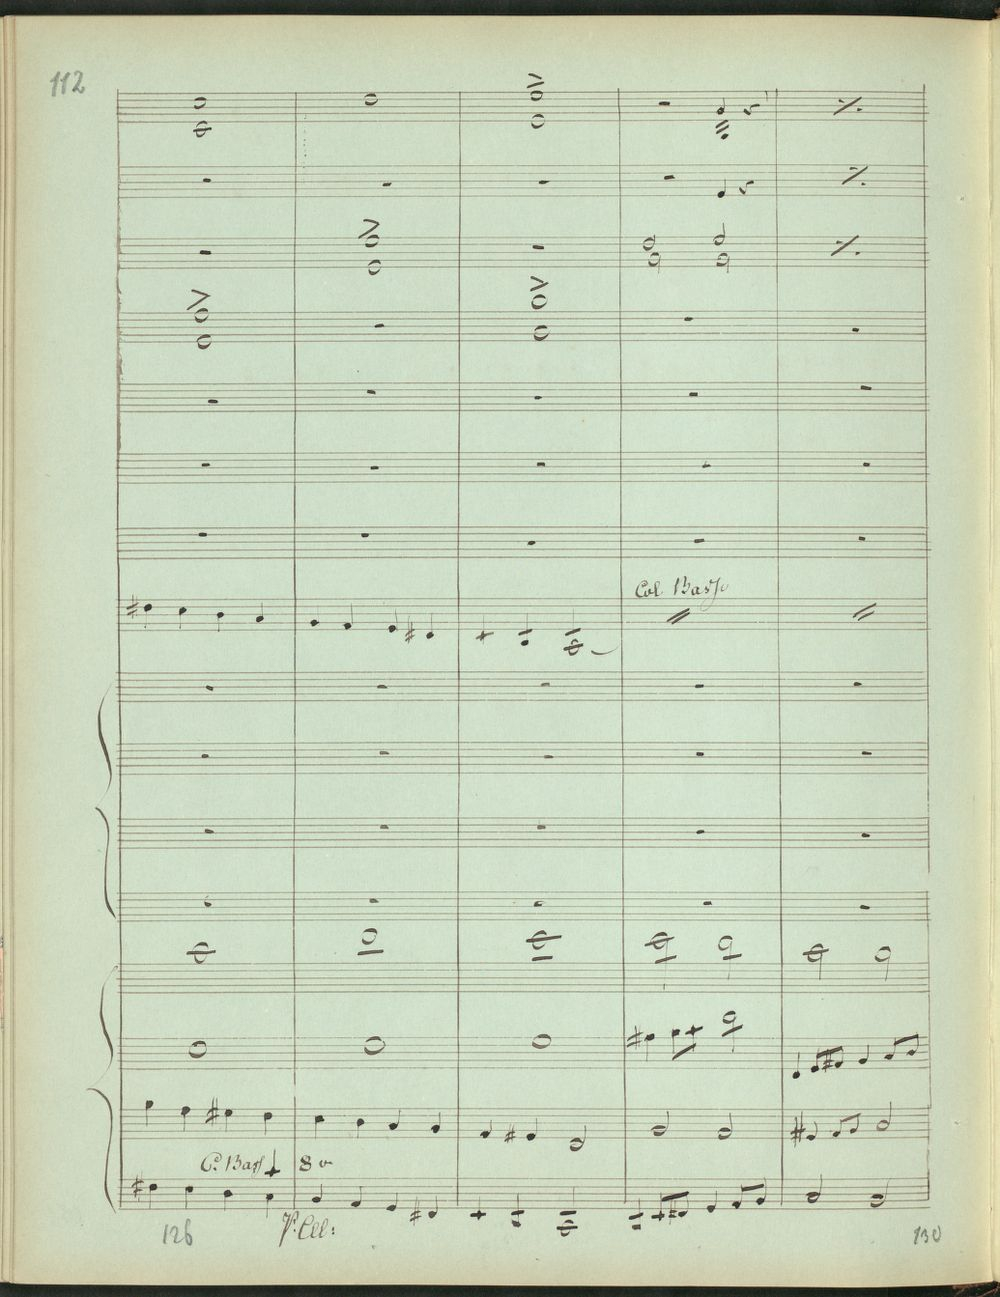 112
Col Basso
C. Bass 8va
V. Cell:
126
130